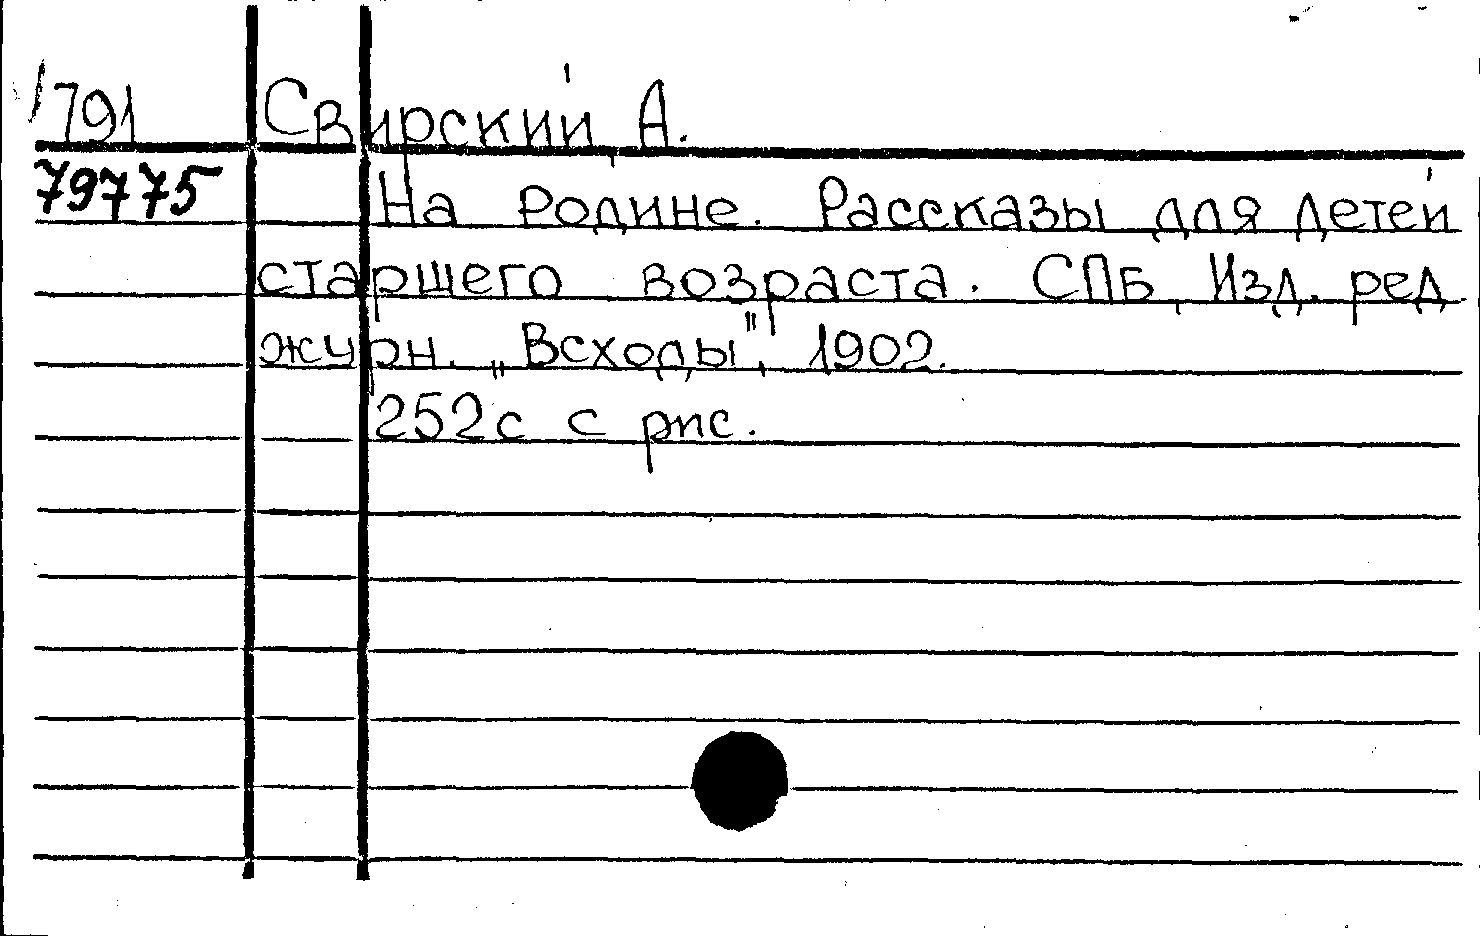 791 Свирский А.
79775 На родине. Рассказы для детей
старшего возраста. СПБ, Изд. ред
журн. „Всходы", 1902.
252с с рис.